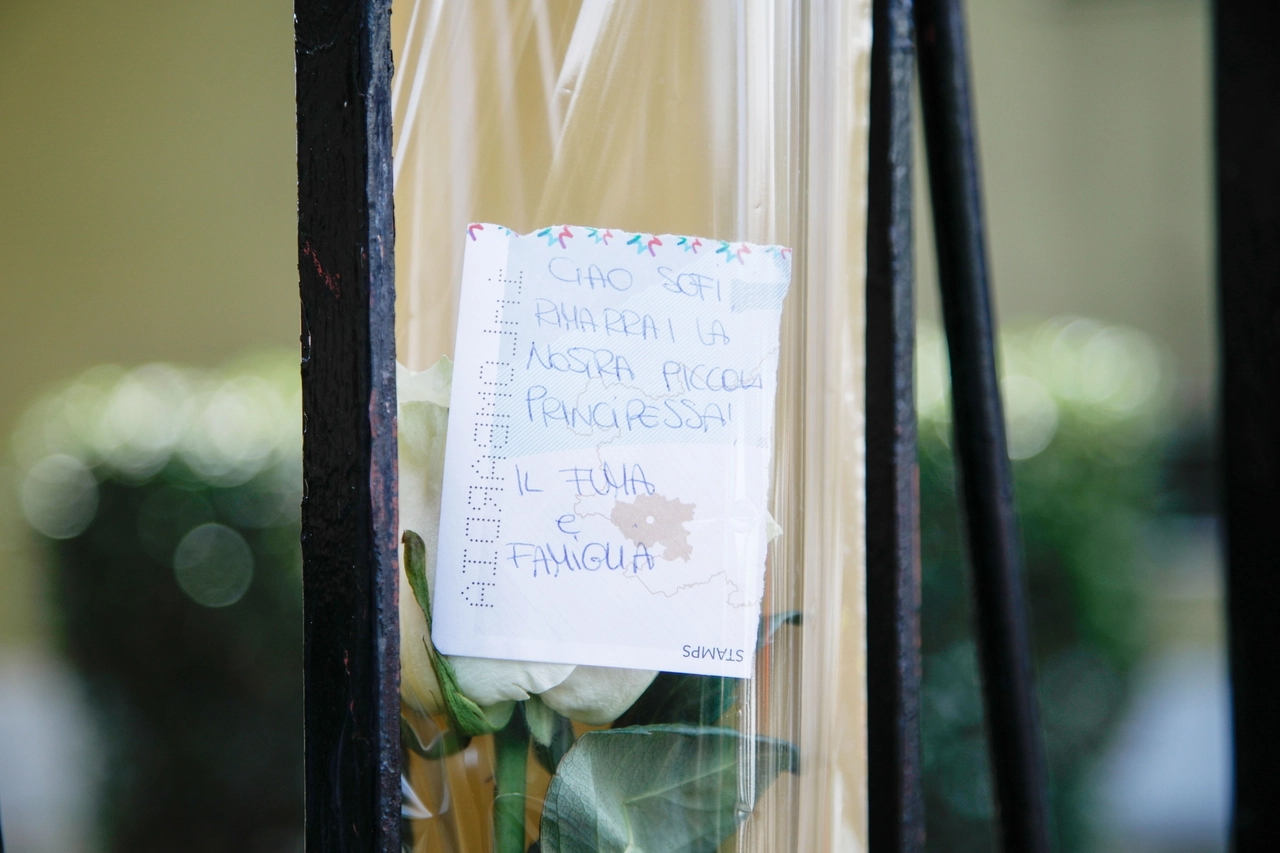 CIAO SOFI
RIMARRAI LA
NOSTRA PICCOLA
PRINCIPESSA!
IL FUMA
e
FAMIGLIA
STAMPS